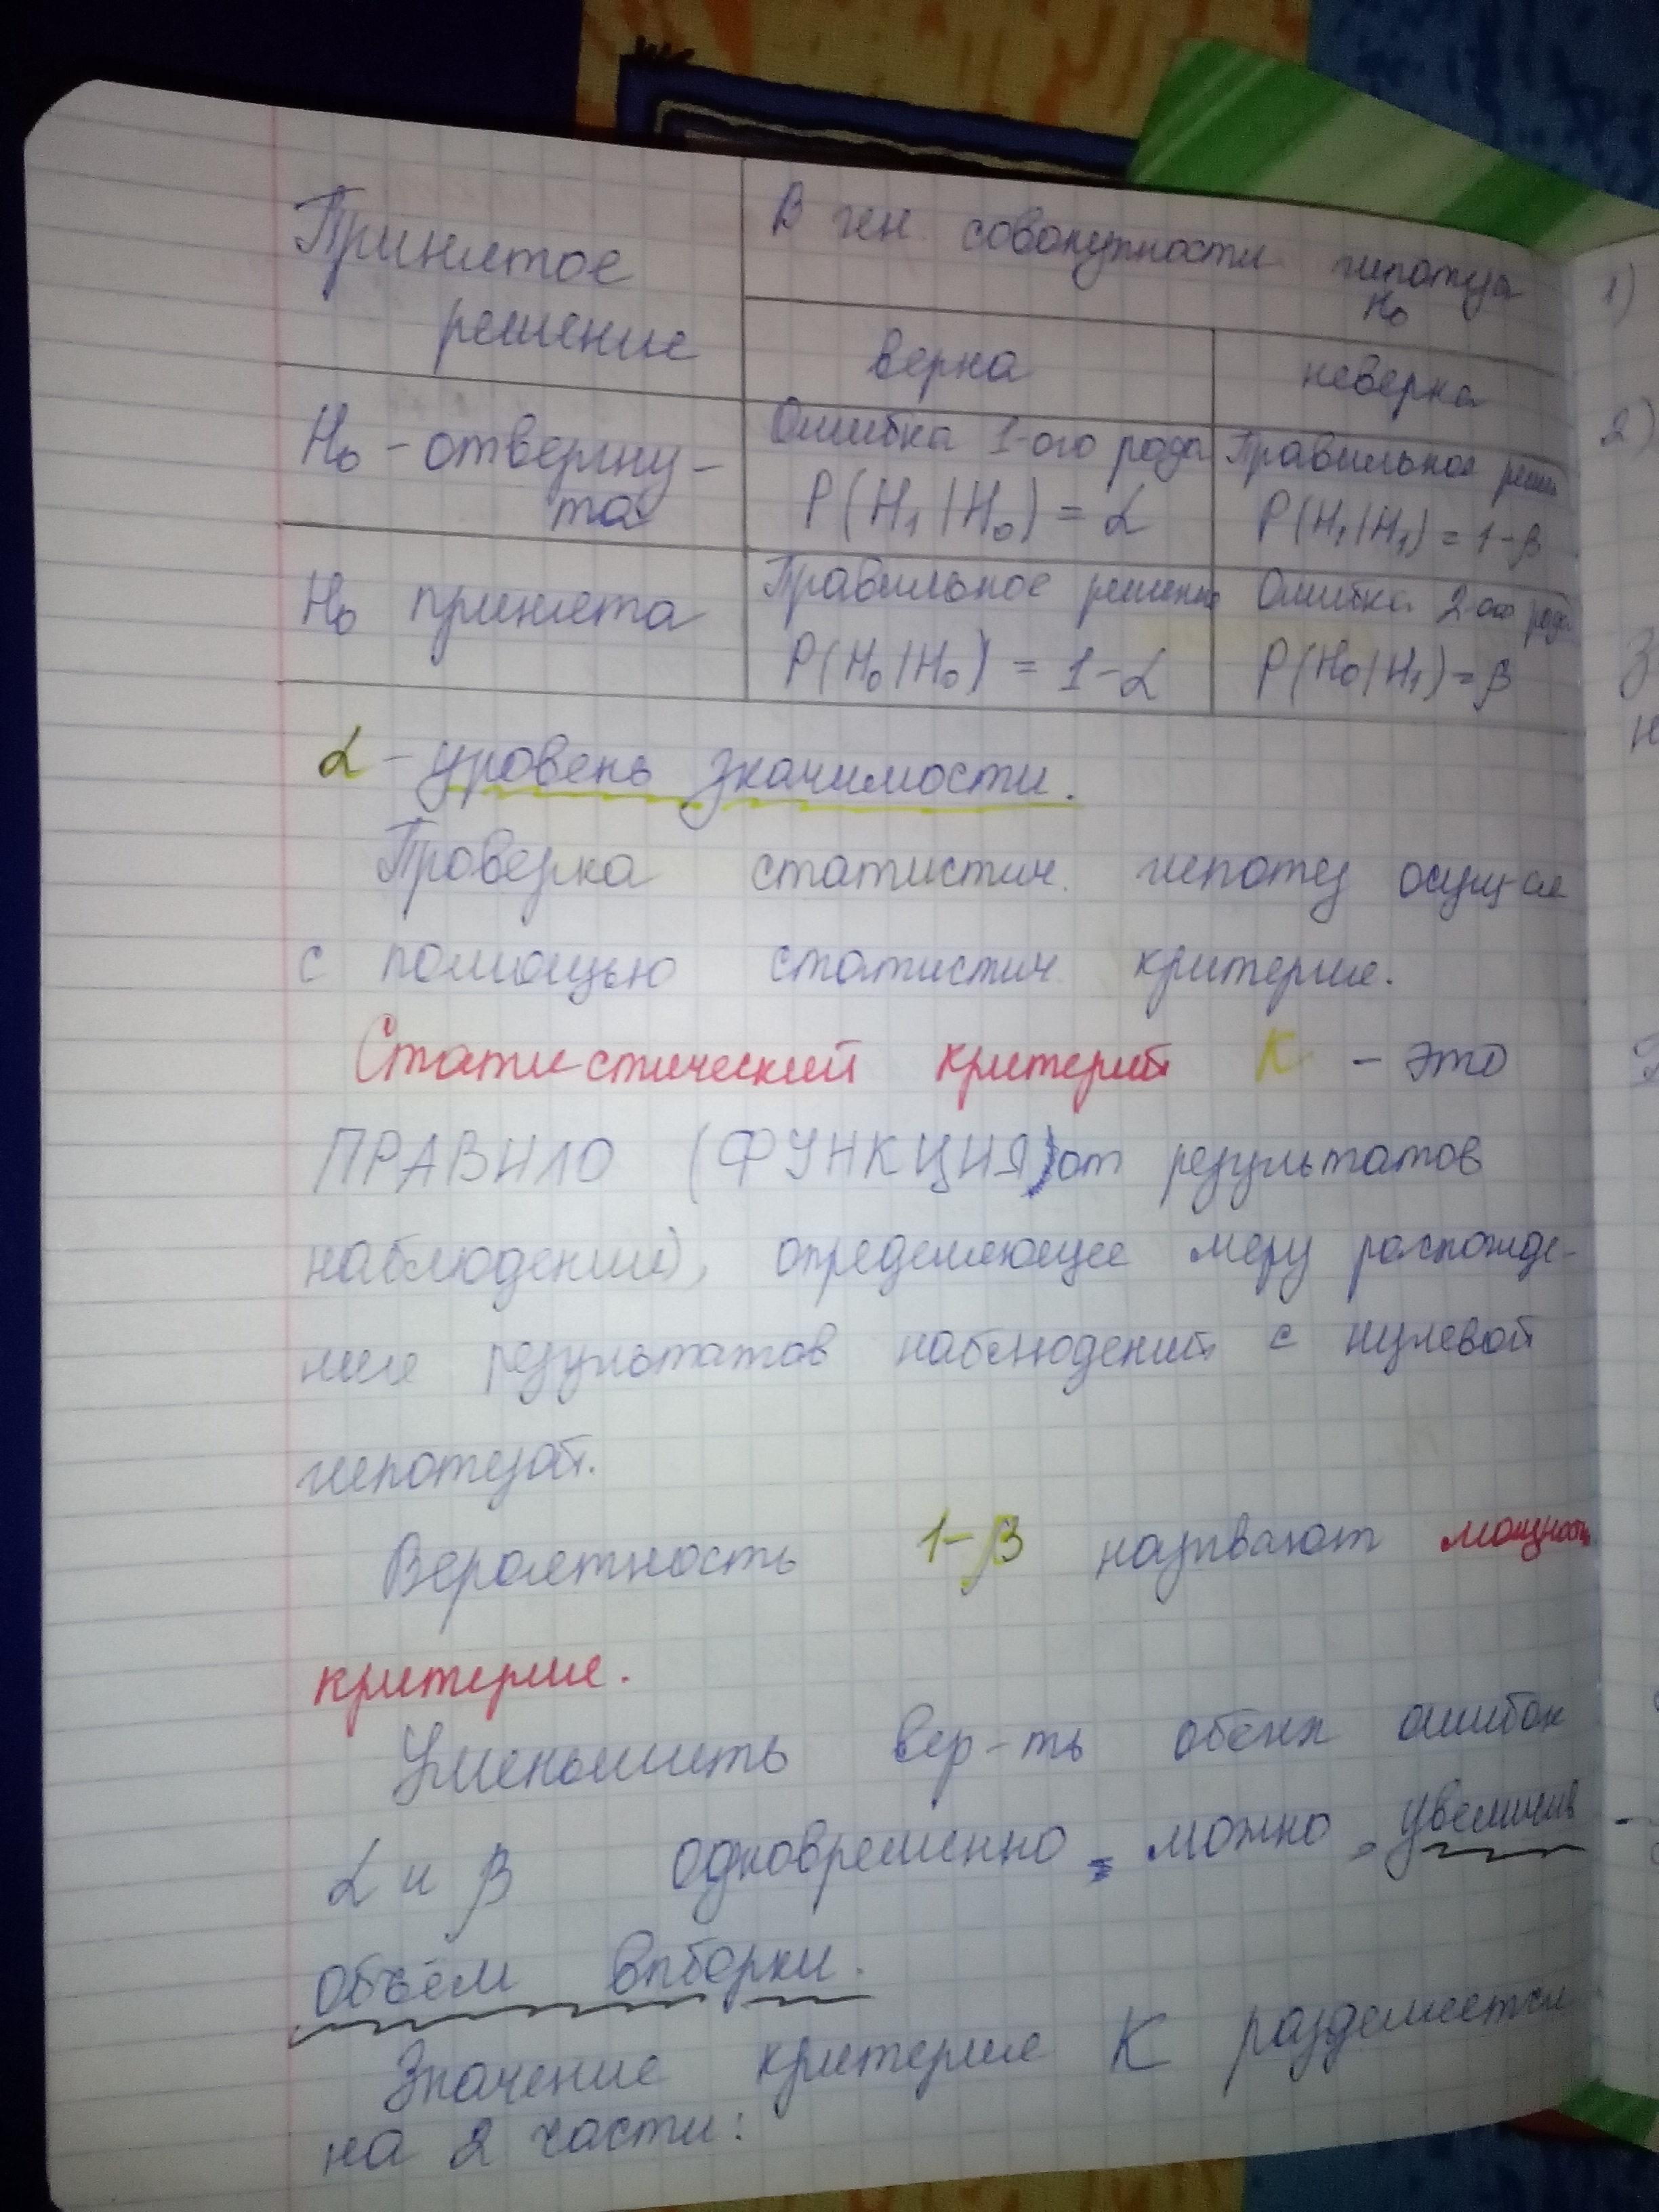 Принятое решение
В ген. совокупности гипотеза H₀
верна
неверна
H₀ - отвергну-
та
Ошибка 1-ого рода
P(H₁|H₀) = α
Правильное реше
P(H₁|H₁) = 1-β
H₀ принята
Правильное решение
P(H₀|H₀) = 1-α
Ошибка 2-ого рода
P(H₀|H₁) = β
α - уровень значимости.
Проверка статистич. гипотез осущ-ся
с помощью статистич. критерия.
Статистический критерий K - это
ПРАВИЛО (ФУНКЦИЯ) от результатов
наблюдений), определяющее меру расхожде-
ния результатов наблюдений с нулевой
гипотезой.
Вероятность 1-β называют мощность
критерия.
Уменьшить вер-ть обеих ошибок
α и β одновременно можно, увеличив
объём выборки.
Значение критерия K разделяется
на 2 части:
1)
2)